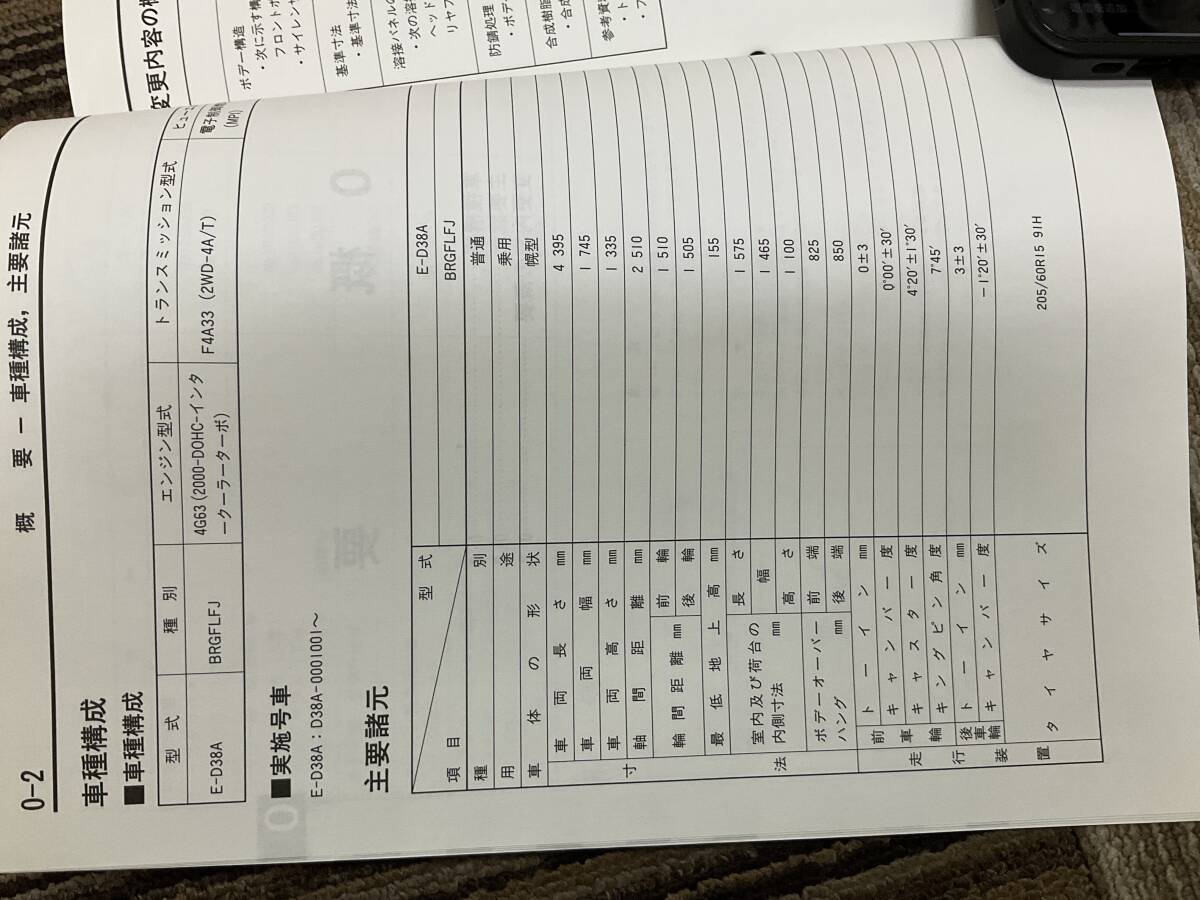 0-2
概　要 — 車種構成，主要諸元
車種構成
■車種構成
型式 種別 エンジン型式 トランスミッション型式
E-D38A BRGFLFJ 4G63（2000-DOHC-インタークーラーターボ） F4A33（2WD-4A/T） (MPI)
■実施号車
E-D38A：D38A-0001001～
主要諸元
項目 型式 E-D38A
BRGFLFJ
種別 普通
用途 乗用
車体の形状 幌型
寸法
車両長さ mm 4 395
車両幅 mm 1 745
車両高さ mm 1 335
軸間距離 mm 2 510
輪間距離 mm 前輪 1 510
後輪 1 505
最低地上高 mm 155
室内及び荷台の内側寸法 mm 長さ 1 575
幅 1 465
高さ 1 100
ボデーオーバーハング mm 前端 825
後端 850
走行装置
前車輪 トーイン mm 0±3
キャンバー 度 0°00′±30′
キャスター 度 4°20′±1°30′
キングピン角度 7°45′
後車輪 トーイン mm 3±3
キャンバー 度 −1°20′±30′
タイヤサイズ 205/60R15 91H
変更内容の
ボデー構造
・次に示す構
フロントボ
・サイレン
基準寸法
・基準寸
溶接パネルの
・次の溶
ヘッド
リヤフ
防錆処理
・ボデ
合成樹脂
・合成
参考資